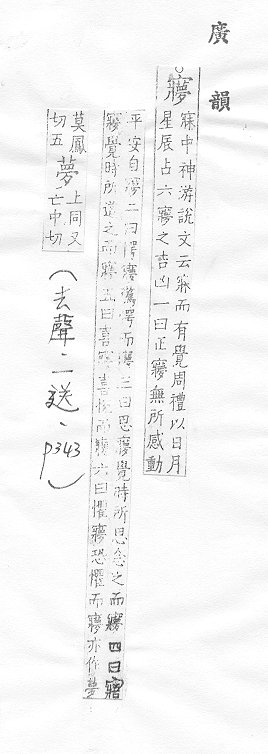 廣韻
㝱
寐中神游說文云寐而有覺周禮以日月
星辰占六㝱之吉凶一曰正㝱無所感動
平安自㝱二曰愕㝱驚愕而㝱三曰思㝱覺時所思念之而㝱四曰寤
㝱覺時所道之而㝱五曰喜㝱喜悅而㝱六曰懼㝱恐懼而㝱亦作夢
莫鳳
切五
夢
上同又
亡中切
(去聲、一送、p343)